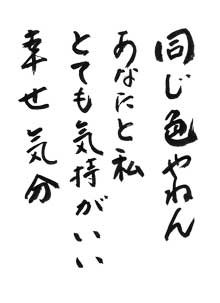 同じ色やねん
あなたと私
とても気持がいい
幸せ気分